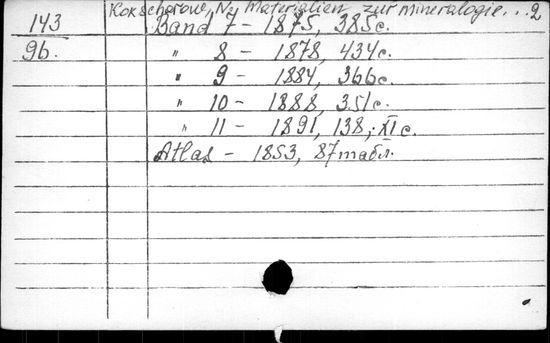 Kokscharow, N. Materialien zur mineralogie...2
143
9b.
Band 7 - 1875, 385с.
" 8 - 1878, 434с.
" 9 - 1884, 366с.
" 10 - 1888, 351с.
" 11 - 1891, 138, XIс.
Atlas - 1853, 87табл.